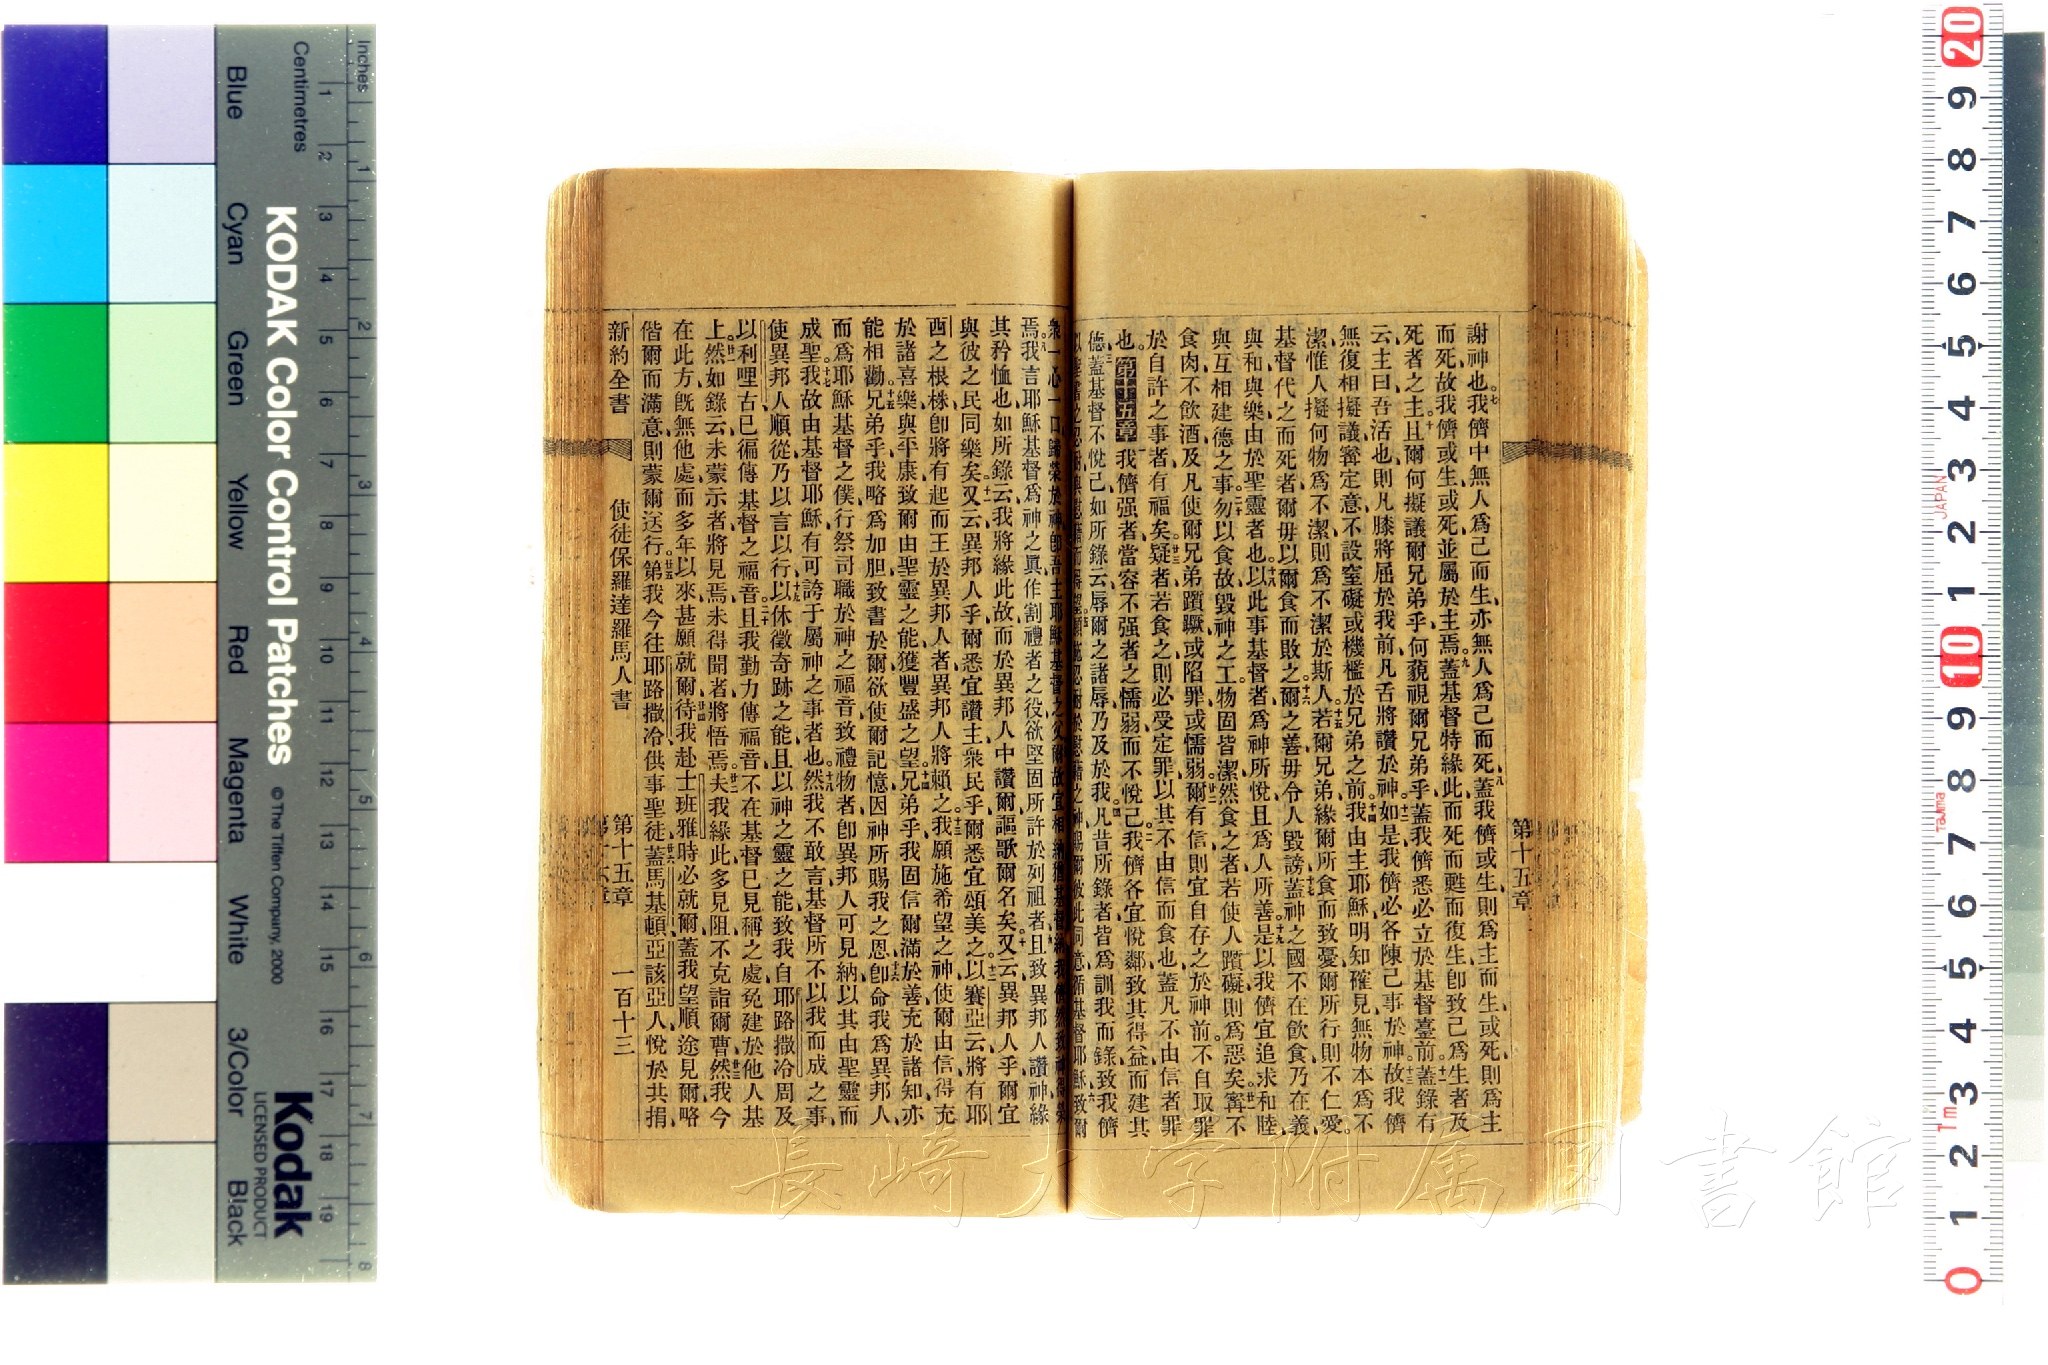 謝神也我儕中無人爲己而生亦無人爲己而死蓋我儕或生則爲主而生或死則爲主
而死故我儕或生或死並屬於主焉蓋基督特緣此而死而甦而復生卽致己爲生者及
死者之主且爾何擬議爾兄弟乎何藐視爾兄弟乎蓋我儕悉必立於基督臺前蓋錄有
云主曰吾活也則凡膝將屈於我前凡舌將讚於神如是我儕必各陳己事於神故我儕
無復相擬議寗定意不設窒礙或機檻於兄弟之前我由主耶穌明知確見無物本爲不
潔惟人擬何物爲不潔則爲不潔於斯人若爾兄弟緣爾所食而致憂爾所行則不仁愛
基督代之而死者爾毋以爾食而敗之爾之善毋令人毀謗蓋神之國不在飲食乃在義
與和與樂由於聖靈者也以此事基督者爲神所悅且爲人所善是以我儕宜追求和睦
與互相建德之事勿以食故毀神之工物固皆潔然食之者若使人躓礙則爲惡矣寗不
食肉不飲酒及凡使爾兄弟躓蹶或陷罪或懦弱爾有信則宜自存之於神前不自取罪
於自許之事者有福矣疑者若食之則必受定罪以其不由信而食也蓋凡不由信者罪
也第十五章我儕强者當容不强者之懦弱而不悅己我儕各宜悅鄰致其得益而建其
德蓋基督不悅己如所錄云辱爾之諸辱乃及於我凡昔所錄者皆爲訓我而錄致我儕
第十五章
衆一心一口歸榮於神卽吾主耶穌基督之父爾故宜相納
焉我言耶穌基督爲神之眞作割禮者之役欲堅固所許於列祖者且致異邦人讚神緣
其矜恤也如所錄云我將緣此故而於異邦人中讚爾謳歌爾名矣又云異邦人乎爾宜
與彼之民同樂矣又云異邦人乎爾悉宜讚主衆民乎爾悉宜頌美之以賽亞云將有耶
西之根株卽將有起而王於異邦人者異邦人將賴之我願施希望之神使爾由信得充
於諸喜樂與平康致爾由聖靈之能獲豐盛之望兄弟乎我固信爾滿於善充於諸知亦
能相勸兄弟乎我略爲加胆致書於爾欲使爾記憶因神所賜我之恩卽命我爲異邦人
而爲耶穌基督之僕行祭司職於神之福音致禮物者卽異邦人可見納以其由聖靈而
成聖我故由基督耶穌有可誇于屬神之事者也然我不敢言基督所不以我而成之事
使異邦人順從乃以言以行以休徵奇跡之能且以神之靈之能致我自耶路撒冷周及
以利哩古已徧傳基督之福音且我勤力傳福音不在基督已見稱之處免建於他人基
上然如錄云未蒙示者將見焉未得聞者將悟焉夫我緣此多見阻不克詣爾曹然我今
在此方旣無他處而多年以來甚願就爾待我赴士班雅時必就爾蓋我望順途見爾略
偕爾而滿意則蒙爾送行第我今往耶路撒冷供事聖徒蓋馬基頓亞該亞人悅於共捐
新約全書 使徒保羅達羅馬人書 第十五章 一百十三
Inches
Centimetres
Blue Cyan Green Yellow Red Magenta White 3/Color Black
KODAK Color Control Patches © The Tiffen Company, 2000
Kodak
LICENSED PRODUCT
1 2 3 4 5 6 7 8 9 10 11 12 13 14 15 16 17 18 19
1 2 3 4 5 6 7 8
20 9 8 7 6 5 4 3 2 1 10 9 8 7 6 5 4 3 2 1 0
JAPAN
Tajima
1m
長崎大学附属図書館